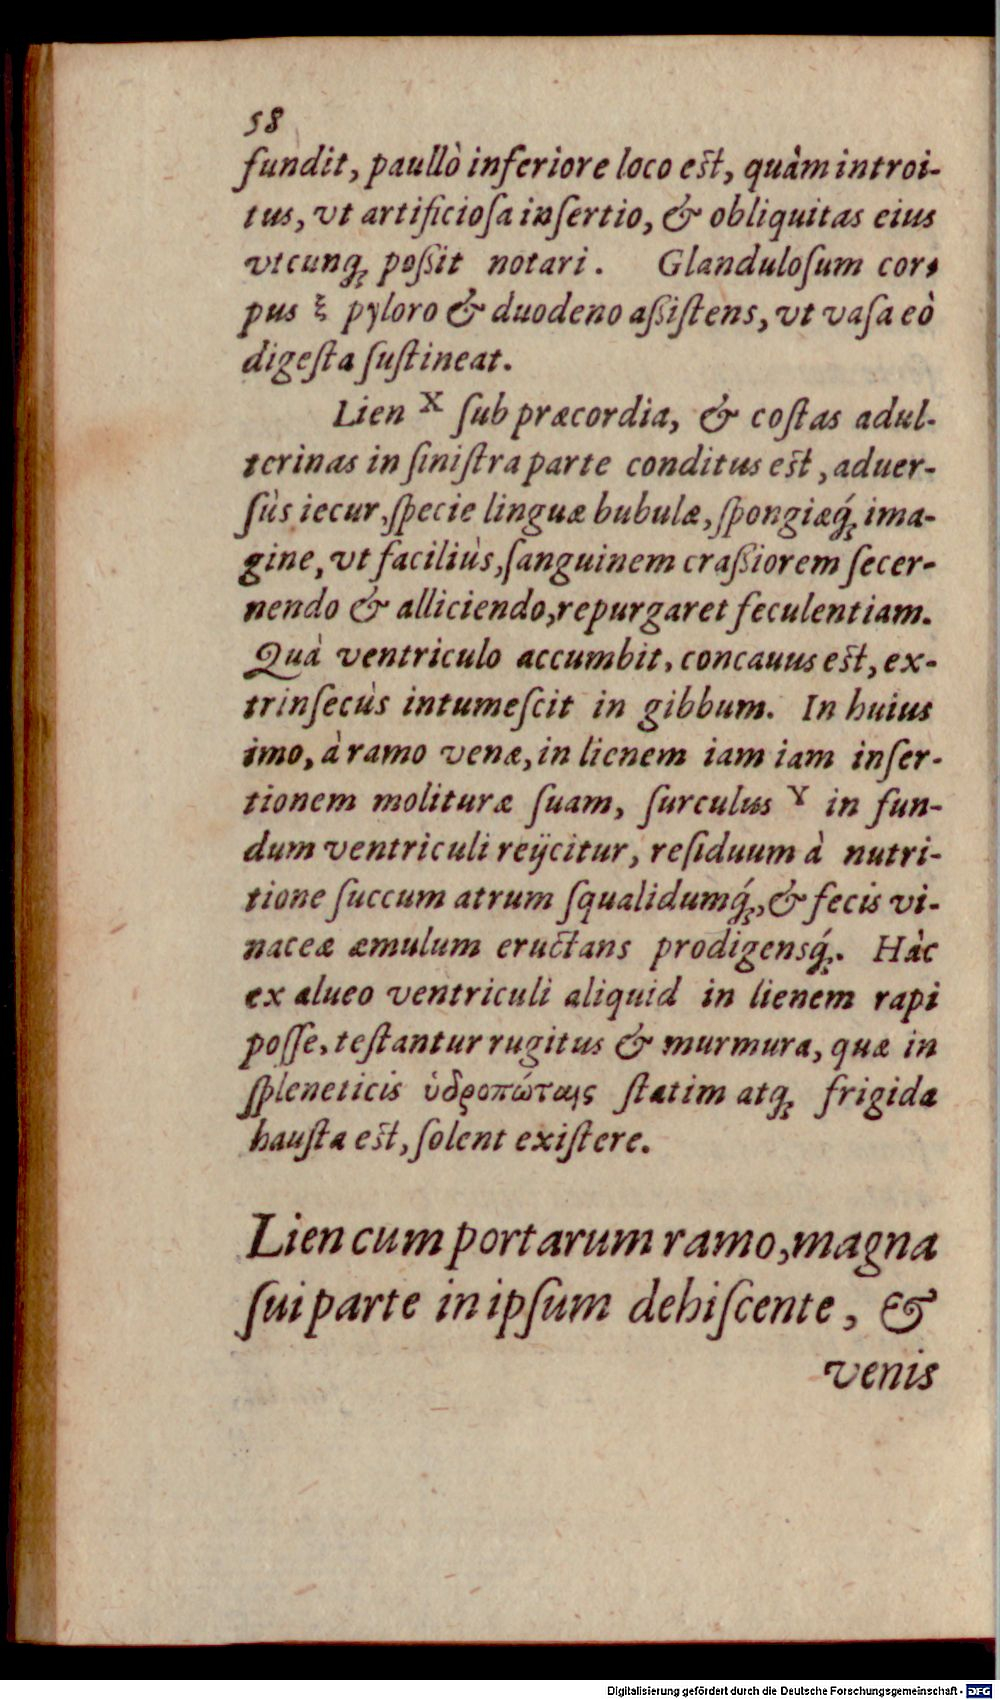 58
fundit, paullò inferiore loco est, quàm introi-
tus, vt artificioſa inſertio, & obliquitas eius
vtcunq́ꝫ poßit notari. Glanduloſum cor-
pus ξ pyloro & duodeno aßiſtens, vt vaſa eò
digeſta ſuſtineat.
Lien X ſub præcordia, & coſtas adul-
terinas in ſiniſtra parte conditus est, aduer-
ſùs iecur, ſpecie linguæ bubulæ, ſpongiæq́ꝫ ima-
gine, vt faciliùs, ſanguinem craßiorem ſecer-
nendo & alliciendo, repurgaret feculentiam.
Quà ventriculo accumbit, concauus est, ex-
trinſecùs intumeſcit in gibbum. In huius
imo, à ramo venæ, in lienem iam iam inſer-
tionem molituræ ſuam, ſurculus Y in fun-
dum ventriculi reijcitur, reſiduum à nutri-
tione ſuccum atrum ſqualidumq́ꝫ, & fecis vi-
naceæ æmulum eructans prodigensq́ꝫ. Hàc
ex alueo ventriculi aliquid in lienem rapi
poſſe, teſtantur rugitus & murmura, quæ in
ſpleneticis ὑδροπώταις ſtatim atqꝫ frigida
hauſta est, ſolent exiſtere.
Lien cum portarum ramo, magna
ſui parte in ipſum dehiſcente, &
venis
Digitalisierung gefördert durch die Deutsche Forschungsgemeinschaft - DFG